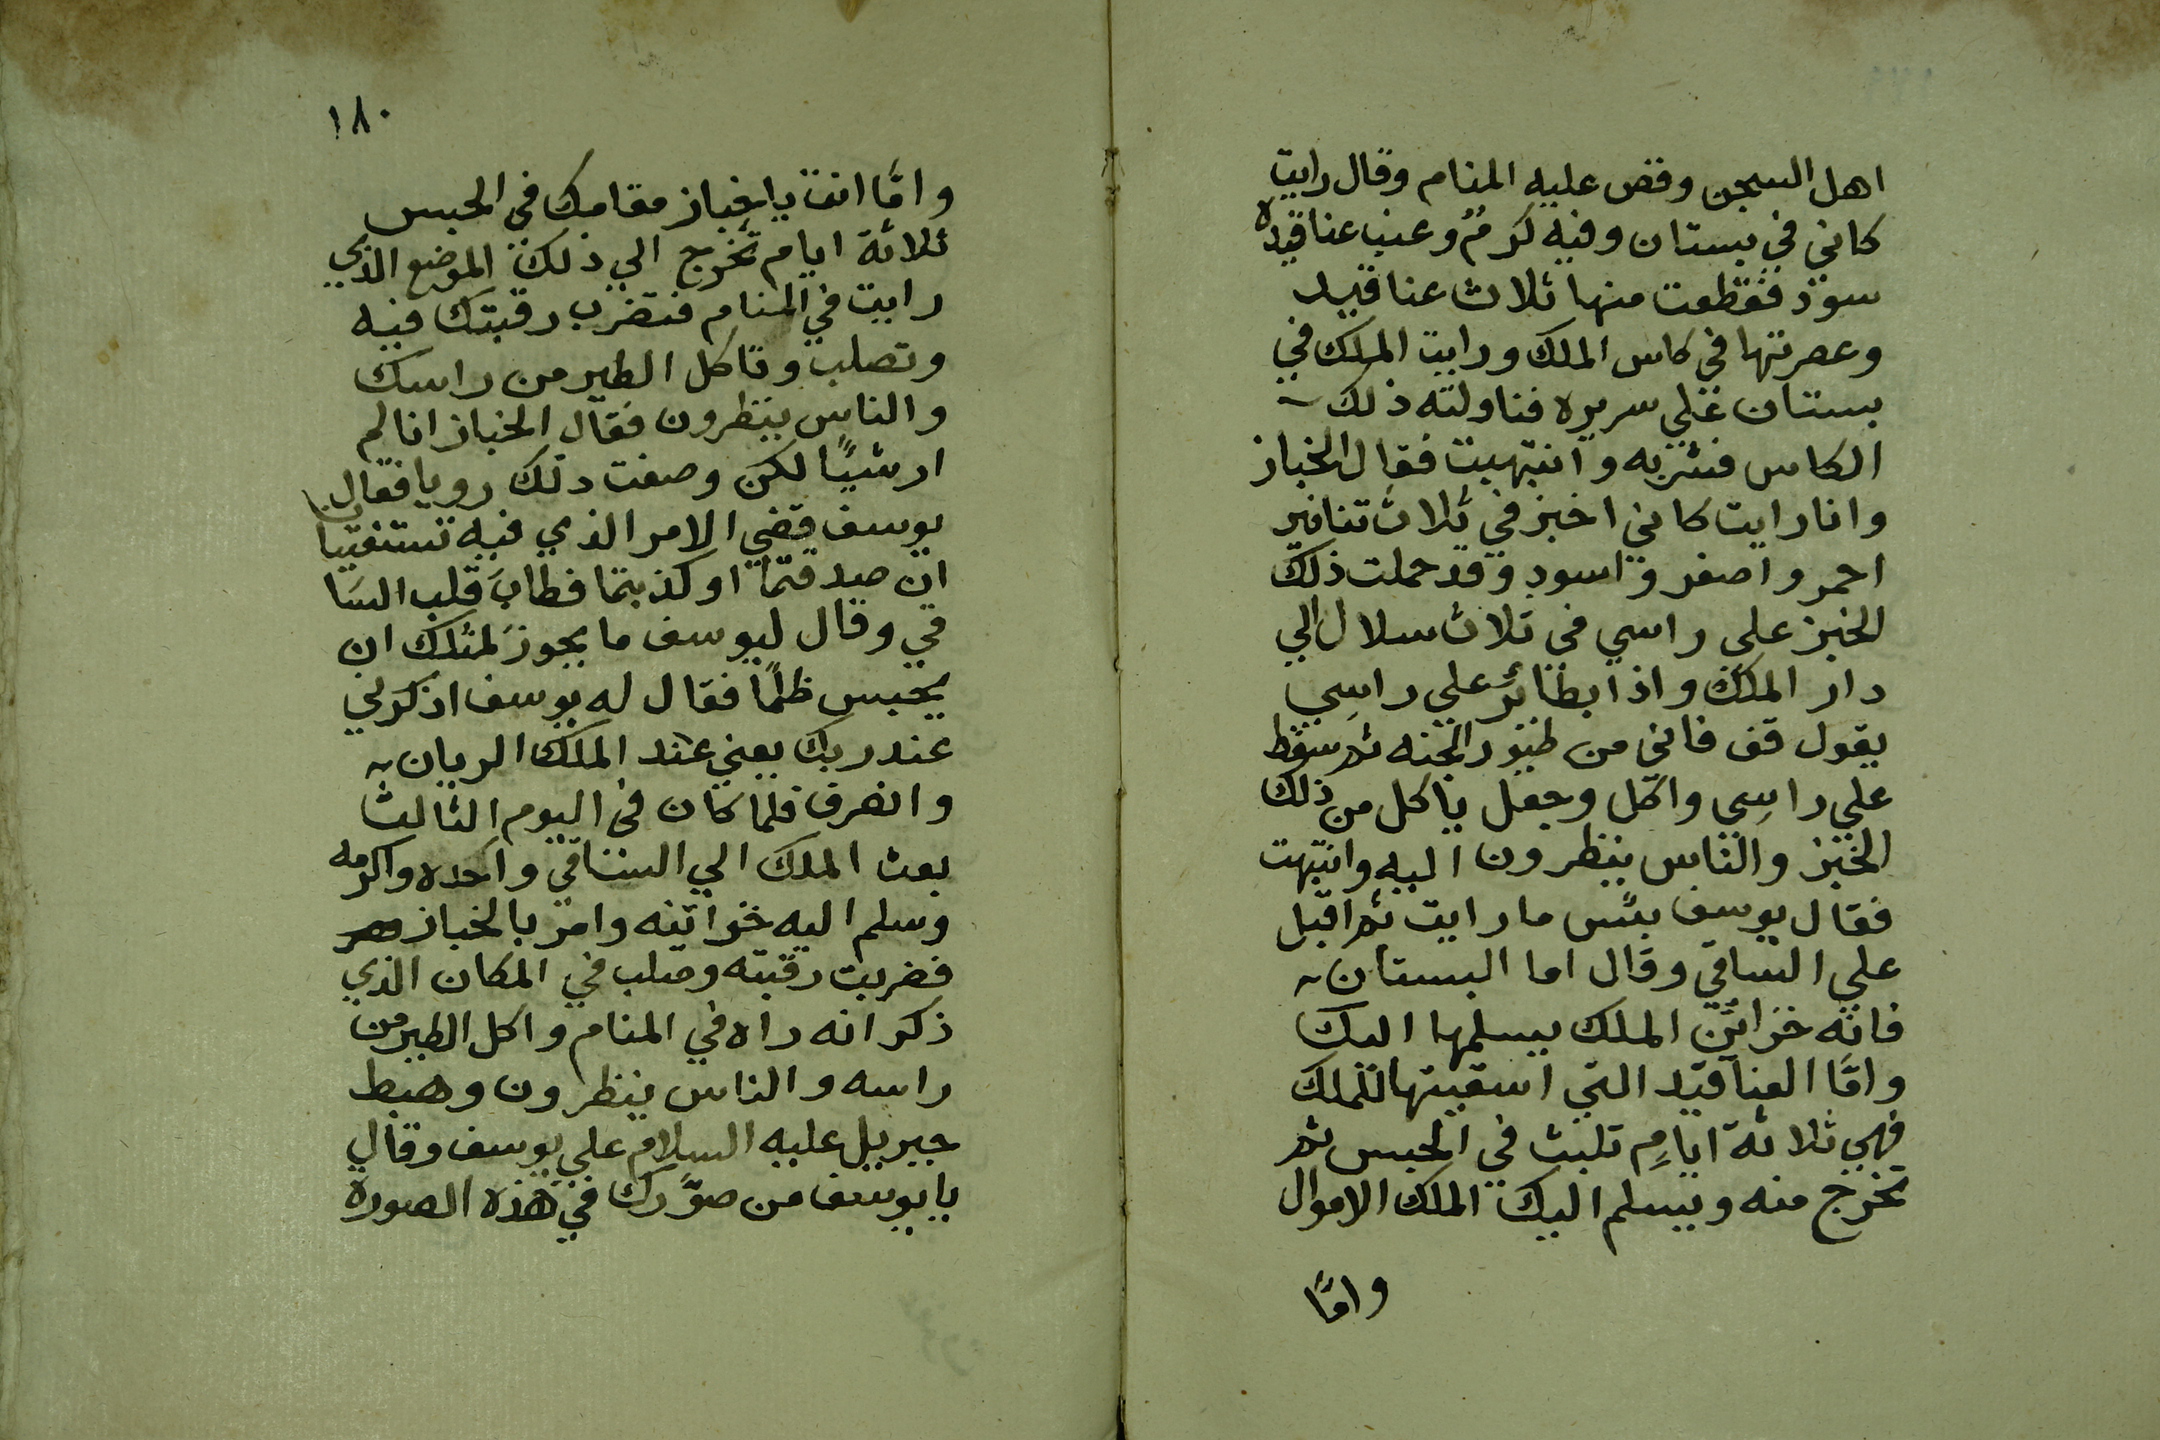 اهل السجن وقص عليه المنام وقال رايت
كاني في بستان وفيه كرمٌ وعنب عناقيده
سود فقطعت منها ثلاث عناقيد
وعصرتها في كاس الملك ورايت الملك في
بستان علي سريره فناولته ذلك
الكاس فشربه وانتبهت فقال الخباز
وانا رايت كاني اخبز في ثلاث تنانير
احمر واصفر واسود وقد حملت ذلك
الخبز علي راسي في ثلاث سلال الي
دار الملك واذا بطائر علي راسِي
يقول قف فاني من طيور الجنه ثم سقط
علي راسِي واكل وجعل ياكل من ذلك
الخبز والناس ينظرون اليه وانتبهت
فقال يوسف بئس ما رايت ثم اقبل
علي الساقي وقال اما البستان
فانه خزائن الملك يسلمها اليك
وامَّا العناقيد التي اسقيتها للملك
فهي ثلاثة ايامٍ تلبث في الحبس ثم
تخرج منه ويسلم اليك الملك الاموال
وامَّا
١٨٠
وامَّا انت ياخباز مقامك في الحبس
ثلاثة ايام تخرج الي ذلك الموضع الذي
رايت في المنام فتضرب رقبتك فيه
وتصلب وتاكل الطير من راسك
والناس ينظرون فقال الخباز انا لم
ار شيًا لكن وصفت ذلك رويا فقال
يوسف قضي الامر الذي فيه تستفتيا
ان صدقتما او كذبتما فطابَ قلب السَا
قي وقال ليوسف ما يجوز لمثلك ان
يحبس ظلمًا فقال له يوسف اذكرني
عند ربك يعني عند الملك الريان
وانصرف فلما كان في اليوم الثالث
بعث الملك الي الساقي واخده واكرمه
وسلم اليه خزائنه وامر بالخباز
فضربت رقبته وصلب في المكان الذي
ذكر انه راه في المنام واكل الطير من
راسه والناس ينظرون وهبط
جبريل عليه السلام علي يوسف وقال
يايوسف من صوَّرك في هذه الصورة